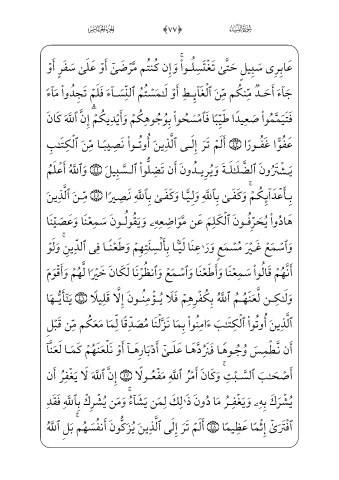 سورة النساء ﴿٧٧﴾ الجزء الخامس
عَابِرِى سَبِيلٍ حَتَّىٰ تَغْتَسِلُوا۟ ۚ وَإِن كُنتُم مَّرْضَىٰٓ أَوْ عَلَىٰ سَفَرٍ أَوْ
جَآءَ أَحَدٌ مِّنكُم مِّنَ ٱلْغَآئِطِ أَوْ لَـٰمَسْتُمُ ٱلنِّسَآءَ فَلَمْ تَجِدُوا۟ مَآءً
فَتَيَمَّمُوا۟ صَعِيدًا طَيِّبًا فَٱمْسَحُوا۟ بِوُجُوهِكُمْ وَأَيْدِيكُمْ ۗ إِنَّ ٱللَّهَ كَانَ
عَفُوًّا غَفُورًا ۝ أَلَمْ تَرَ إِلَى ٱلَّذِينَ أُوتُوا۟ نَصِيبًا مِّنَ ٱلْكِتَـٰبِ
يَشْتَرُونَ ٱلضَّلَـٰلَةَ وَيُرِيدُونَ أَن تَضِلُّوا۟ ٱلسَّبِيلَ ۝ وَٱللَّهُ أَعْلَمُ
بِأَعْدَآئِكُمْ ۚ وَكَفَىٰ بِٱللَّهِ وَلِيًّا وَكَفَىٰ بِٱللَّهِ نَصِيرًا ۝ مِّنَ ٱلَّذِينَ
هَادُوا۟ يُحَرِّفُونَ ٱلْكَلِمَ عَن مَّوَاضِعِهِۦ وَيَقُولُونَ سَمِعْنَا وَعَصَيْنَا
وَٱسْمَعْ غَيْرَ مُسْمَعٍ وَرَٰعِنَا لَيًّۢا بِأَلْسِنَتِهِمْ وَطَعْنًا فِى ٱلدِّينِ ۚ وَلَوْ
أَنَّهُمْ قَالُوا۟ سَمِعْنَا وَأَطَعْنَا وَٱسْمَعْ وَٱنظُرْنَا لَكَانَ خَيْرًا لَّهُمْ وَأَقْوَمَ
وَلَـٰكِن لَّعَنَهُمُ ٱللَّهُ بِكُفْرِهِمْ فَلَا يُؤْمِنُونَ إِلَّا قَلِيلًا ۝ يَـٰٓأَيُّهَا
ٱلَّذِينَ أُوتُوا۟ ٱلْكِتَـٰبَ ءَامِنُوا۟ بِمَا نَزَّلْنَا مُصَدِّقًا لِّمَا مَعَكُم مِّن قَبْلِ
أَن نَّطْمِسَ وُجُوهًا فَنَرُدَّهَا عَلَىٰٓ أَدْبَارِهَآ أَوْ نَلْعَنَهُمْ كَمَا لَعَنَّآ
أَصْحَـٰبَ ٱلسَّبْتِ ۚ وَكَانَ أَمْرُ ٱللَّهِ مَفْعُولًا ۝ إِنَّ ٱللَّهَ لَا يَغْفِرُ أَن
يُشْرَكَ بِهِۦ وَيَغْفِرُ مَا دُونَ ذَٰلِكَ لِمَن يَشَآءُ ۚ وَمَن يُشْرِكْ بِٱللَّهِ فَقَدِ
ٱفْتَرَىٰٓ إِثْمًا عَظِيمًا ۝ أَلَمْ تَرَ إِلَى ٱلَّذِينَ يُزَكُّونَ أَنفُسَهُم ۚ بَلِ ٱللَّهُ